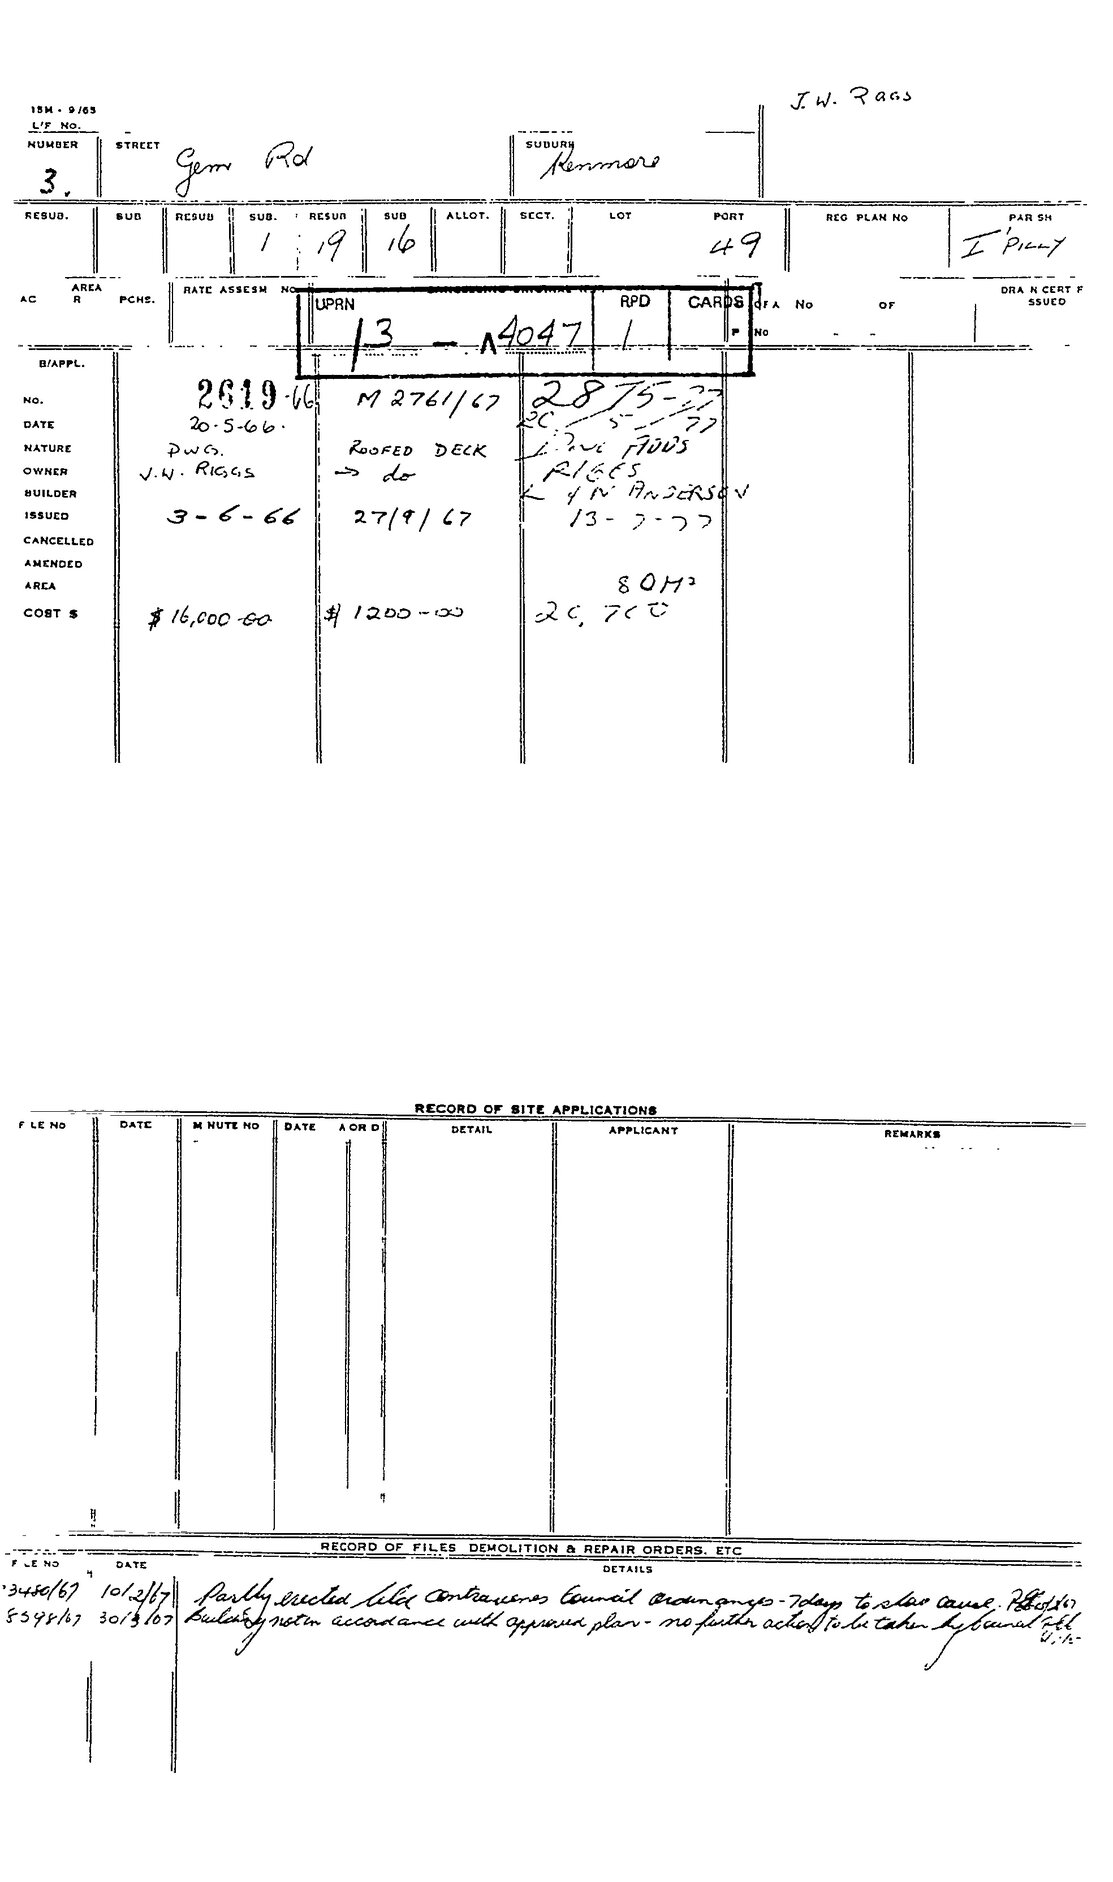 J.W. Rggs
15M - 9/65
L/F NO.
NUMBER STREET SUBURB
3. Gem Rd Kenmore
RESUB. SUB RESUB SUB. RESUB SUB ALLOT. SECT. LOT PORT REG PLAN NO PAR SH
1 19 16 49 I'PILLY
AREA RATE ASSESM NO DRA N CERT F
AC R PCHS. UPRN RPD CARDS OF A No OF SSUED
13 - 4047 1 P No
B/APPL.
No. 2619-66 M 2761/67 2875-77
DATE 20-5-66. 20/5/77
NATURE DWG. ROOFED DECK ADDS
OWNER J.W. RIGGS → do RIGGS
BUILDER L & N ANDERSON
ISSUED 3-6-66 27/9/67 13-7-77
CANCELLED
AMENDED
AREA 80M²
COST $ $16,000-00 $1200-00 20,700
RECORD OF SITE APPLICATIONS
F LE NO DATE M NUTE NO DATE A OR D DETAIL APPLICANT REMARKS
RECORD OF FILES DEMOLITION & REPAIR ORDERS. ETC
F LE NO DATE DETAILS
3480/67 10/2/67 Partly erected bld contravenes Council ordinances - 7 days to show cause.
8598/67 30/3/67 Building not in accordance with approved plan - no further action to be taken by Council